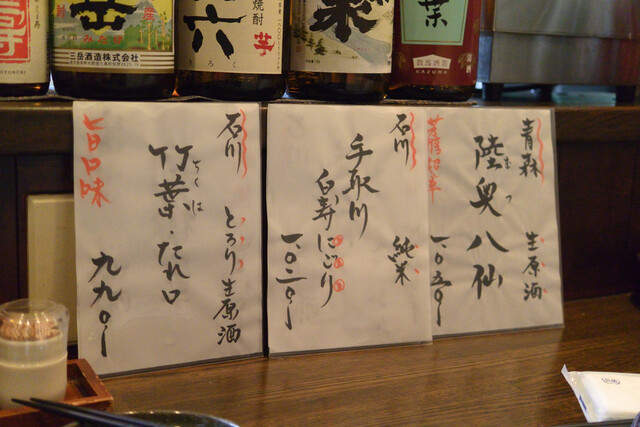 寿
三岳
三岳酒造株式会社
六
焼酎
芋
青森
生原酒
陸奥八仙
むつ
一、〇五〇ー
石川
純米
手取川
白寿にごり
一、〇二〇ー
石川
とろり生原酒
竹葉・たれ口
ちくは
旨口味
九九〇ー